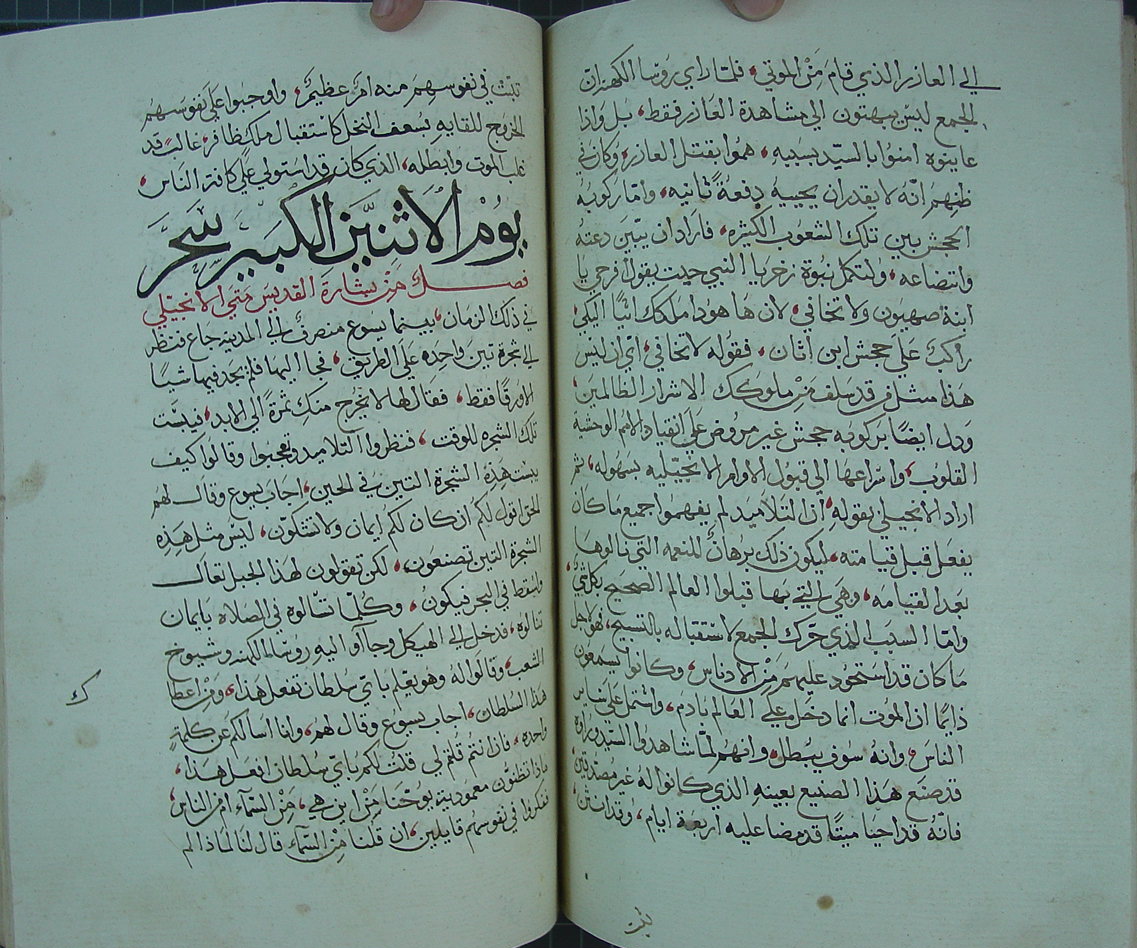 الي العازر الذي قام مِن الموتي، فلما راي روسا الكهنة ان
الجمع ليس يبهتون الي مشاهدة العازر فقط، بل واذا
عاينوه امنوا بالسيد بسببه، هموا بقتل العازر، وكان في
ظنهم انه لا يقدر ان يحييه دفعة ثانيه، واما ركوبه
الجحش بين تلك الشعوب الكثيره، فاراد ان يبين دعته
واتضاعه، ولتكمل نبوة زخريا النبي حيث يقول افرحي يا
ابنة صهيون ولا تخافي، لان ها هوذا ملكك اتيًا اليكي
راكب علي جحش ابن اتان، فقوله لا تخافي، اي ان ليس
هذا مثل من قد سلف من ملوكك الاشرار الظالمين،
ودل ايضًا بركوبه جحش غير مروض علي انقياد الامم الوحشية
القلوب، واسراعها الي قبول الاوامر الانجيليه بسهوله، ثم
اراد الانجيلي بقوله، ان التلاميد لم يفهموا جميع ما كان
يفعل قبل قيامته، ليكون ذلك برهان للنعمه التي نالوها
بعد القيامه، وهي التي بها قبلوا العالم الصحيح بكل شي،
واما السبب الذي حرك الجمع لاستقباله بالتسبيح، فهو لاجل
ما كان قد استحود عليهم من الادناس، وكانوا يسمعون
دايمًا ان الموت انما دخل علي العالم بادم، واشتمل علي ساير
الناس، وانه سوف يبطل، وانهم لما شاهدوا السيد وراوه
قد صنع هذا الصنيع بعينه الذي كانوا له غير مصدقين،
فانه قد احيا ميتًا قد مضا عليه اربعة ايام، وقد اثبتَ،
تبت في نفوسهم منه امر عظيم، واوجبوا علي نفوسهم
الخروج للقايه بسعف النخل كاستقبال ملك ظافر، غالب قد
غلب الموت وابطله، الذي كان قد استولي علي كافة الناس،
يوم الاثنين الكبير سَحَر
فصل من بشارة القديس متي الانجيلي
في ذلك الزمان، بينما يسوع منصرف الي المدينه جاع فنظر
الي شجرة تين واحده علي الطريق، فجا اليها فلم يجد فيها شيا
الا ورقًا فقط، فقال لها لا يخرج منك ثمرة الي الابد، فيبست
تلك الشجره للوقت، فنظروا التلاميد وتعجبوا وقالوا كيف
يبست هذه الشجرة التين في الحين، اجاب يسوع وقال لهم
الحق اقول لكم ان كان لكم ايمان ولا تشكون، ليس مثل هذه
الشجرة التين تصنعون، لكن تقولون لهذا الجبل تعال
واسقط في البحر فيكون، وكلما تسالوه في الصلاه بايمان
تنالوه، فدخل الي الهيكل وجاوا اليه روسا الكهنه وشيوخ
الشعب، وقالوا له وهو يعلم باي سلطان تفعل هذا، ومن اعطا
هذا السلطان، اجاب يسوع وقال لهم، وانا اسالكم عن كلمة
واحده، فان انتم قلتم لي قلت لكم باي سلطان افعل هذا،
ماذا تظنون معمودية يوحنا من اين هي، من السماء ام من الناس
ففكروا في نفوسهم قايلين، ان قلنا من السماء قال لنا لماذا لم
ك
تبت